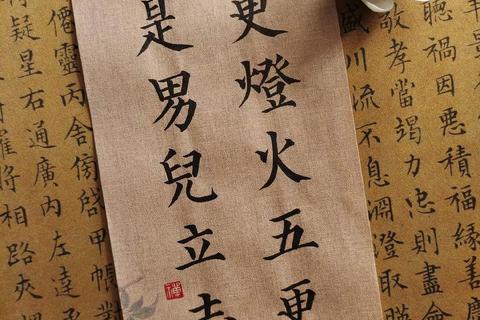 聽禍因惡積福緣善慶
敬孝當竭力忠則盡
盛川流不息淵澄取
更燈火五更
是男兒立志
僊靈丙舍傍啓甲帳對
疑星右通廣內左達
羅將相路俠